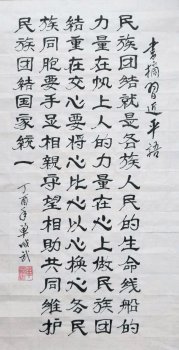 書摘習近平語
民族团结就是各族人民的生命线船的
力量在帆上人的力量在心上做民族团
结重在交心要将心比心以心换心各民
族同胞要手足相親守望相助共同维护
民族团结国家统一
丁酉年